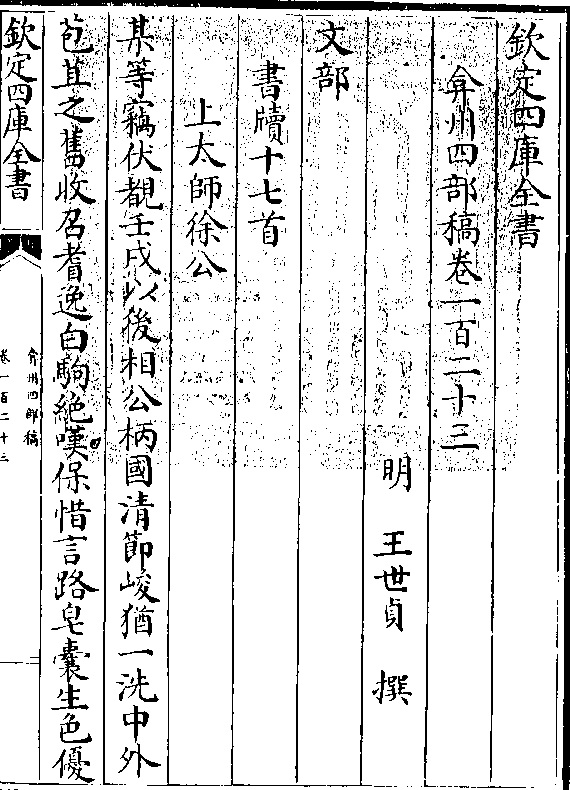 欽定四庫全書
弇州四部稿卷一百二十三
明 王世貞 撰
文部
書牘十七首
上太師徐公
某等竊伏覩壬戌以後相公柄國清節峻猶一洗中外
苞苴之舊收召耆逸白駒絶嘆保惜言路皂囊生色優
欽定四庫全書
弇州四部稿
卷一百二十三